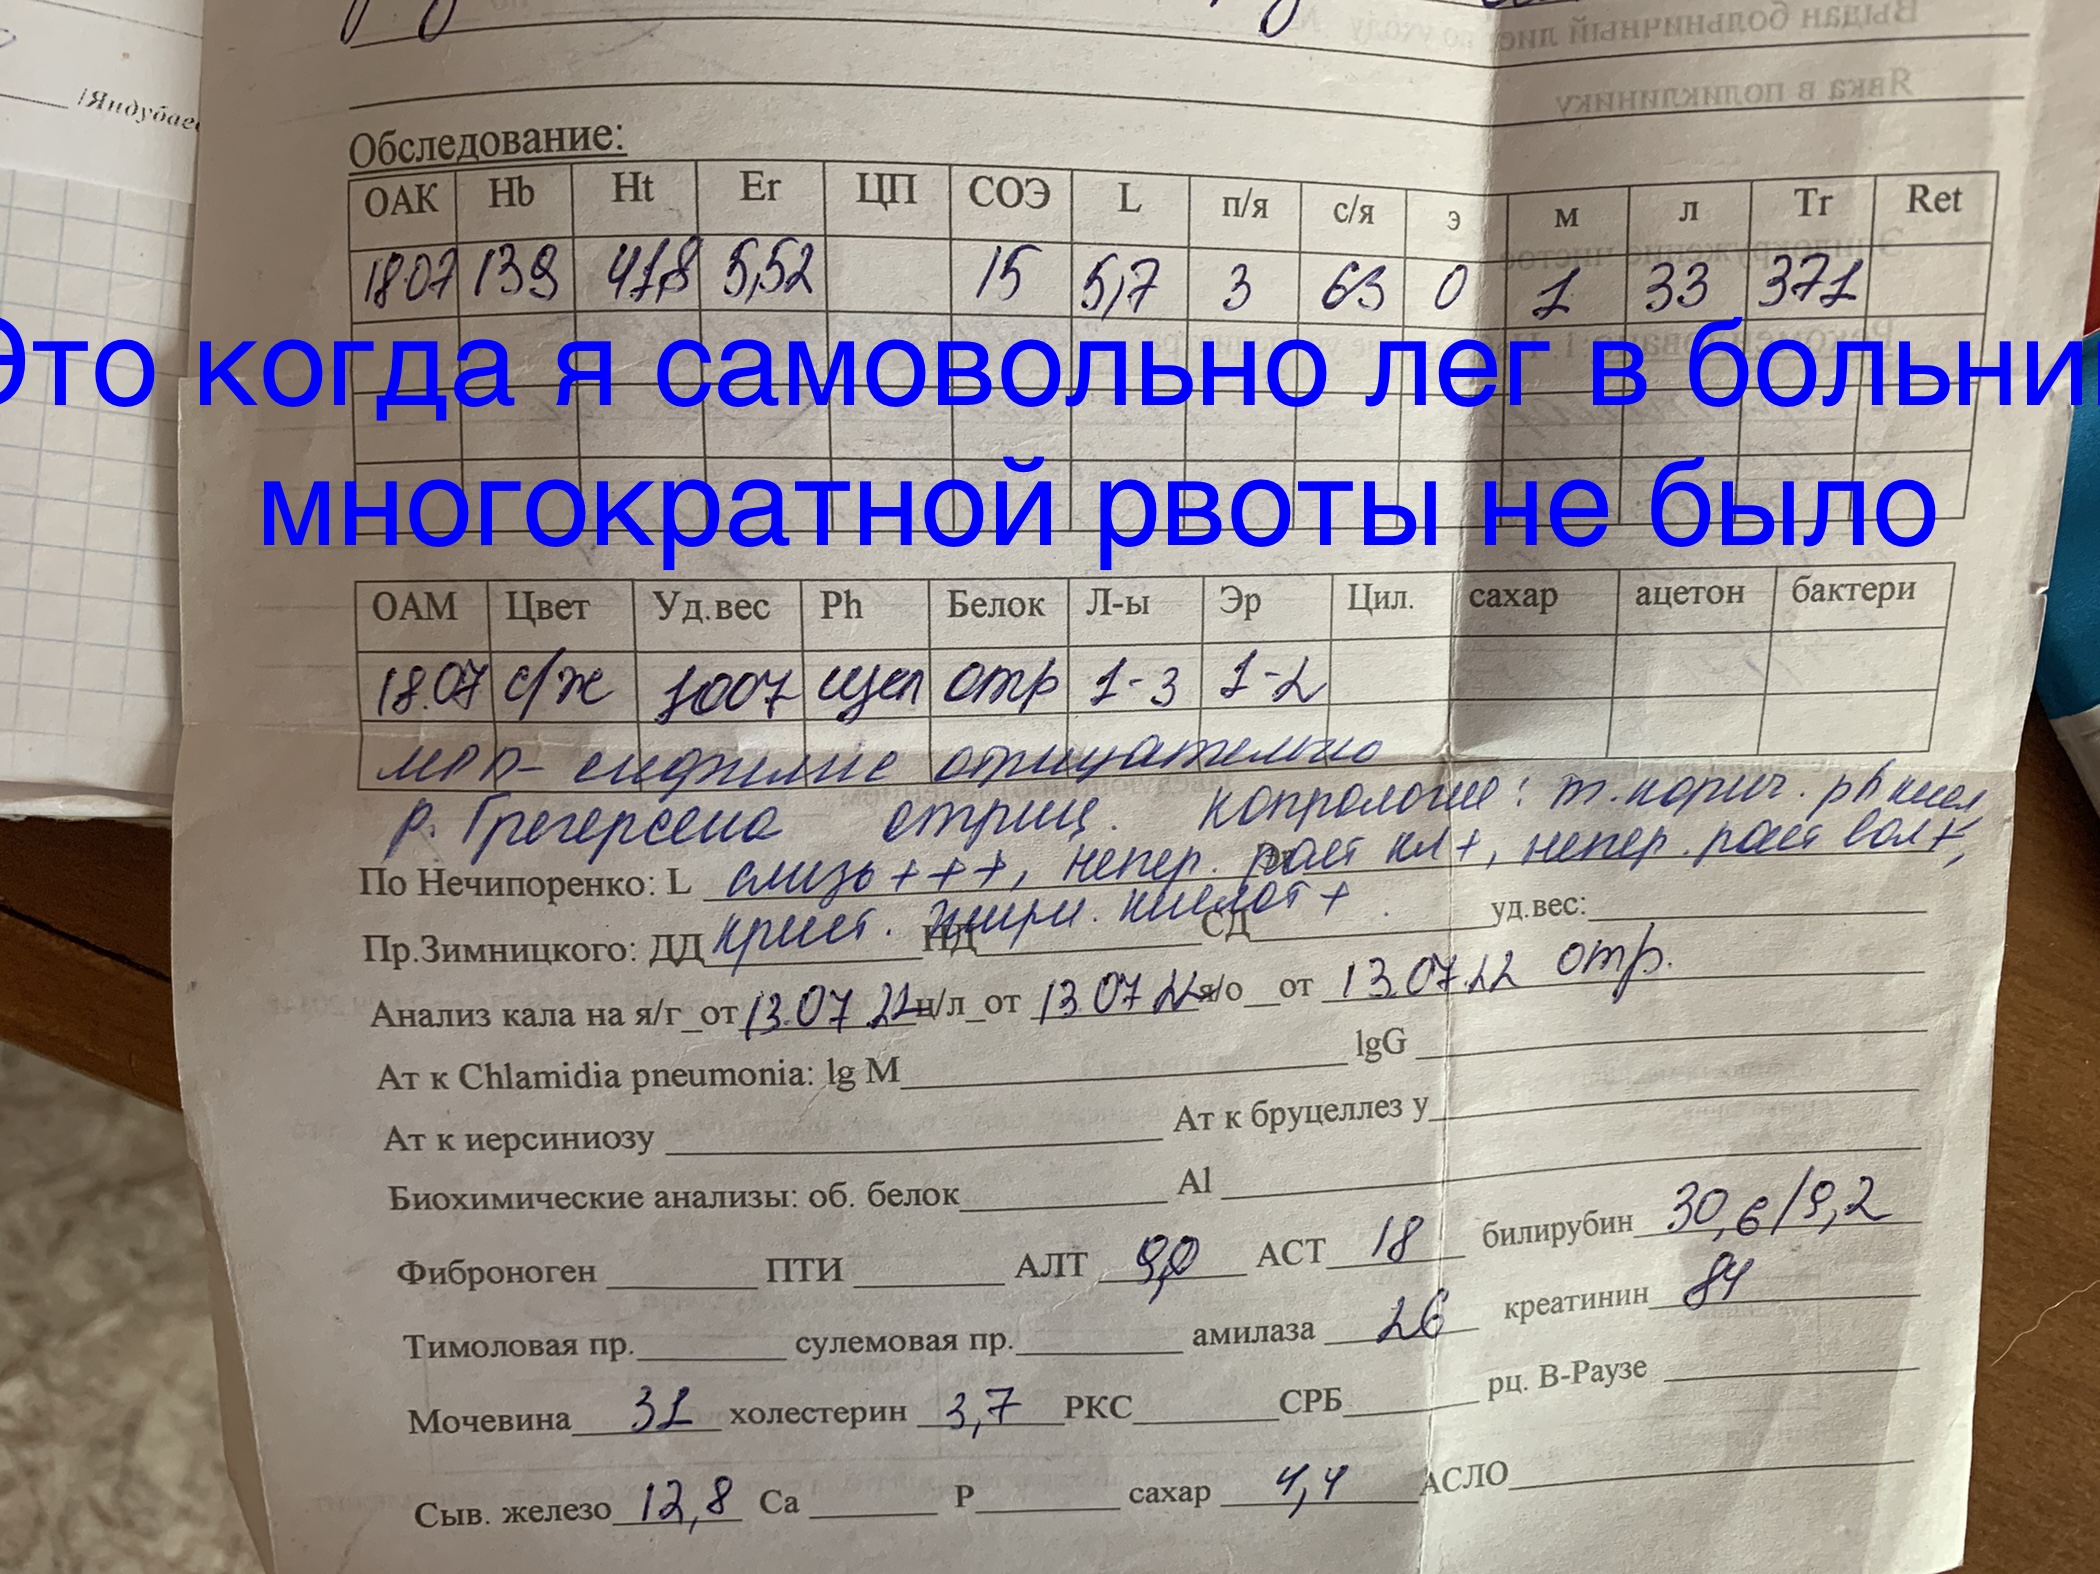 Выдан больничный лист по уходу №
по
Явка в поликлинику
/Яндубаев
Обследование:
ОАК Hb Ht Er ЦП СОЭ L п/я с/я э м л Tr Ret
18.07 139 41,8 5,52 15 5,7 3 63 0 1 33 371
Это когда я самовольно лег в больни
многократной рвоты не было
ОАМ Цвет Уд.вес Ph Белок Л-ы Эр Цил. сахар ацетон бактери
18.07 с/ж 1007 щел отр 1-3 1-2
МРП- сифилис отрицательно
р. Грегерсена отриц. копрология: т.корич. ph кисл
По Нечипоренко: L слизь +++, непер. раст кл+, непер. раст вол+,
Пр.Зимницкого: ДД крист. жирн. кислот + НД СД уд.вес:
Анализ кала на я/г_от 13.07.22 ц/л_от 13.07.22 я/о_от 13.07.22 отр.
Ат к Chlamidia pneumonia: lg M lgG
Ат к иерсиниозу Ат к бруцеллез у
Биохимические анализы: об. белок Al
Фиброноген ПТИ АЛТ 9,0 АСТ 18 билирубин 30,6/9,2
Тимоловая пр. сулемовая пр. амилаза 26 креатинин 84
Мочевина 31 холестерин 3,7 РКС СРБ рц. В-Раузе
Сыв. железо 12,8 Са Р сахар 4,4 АСЛО